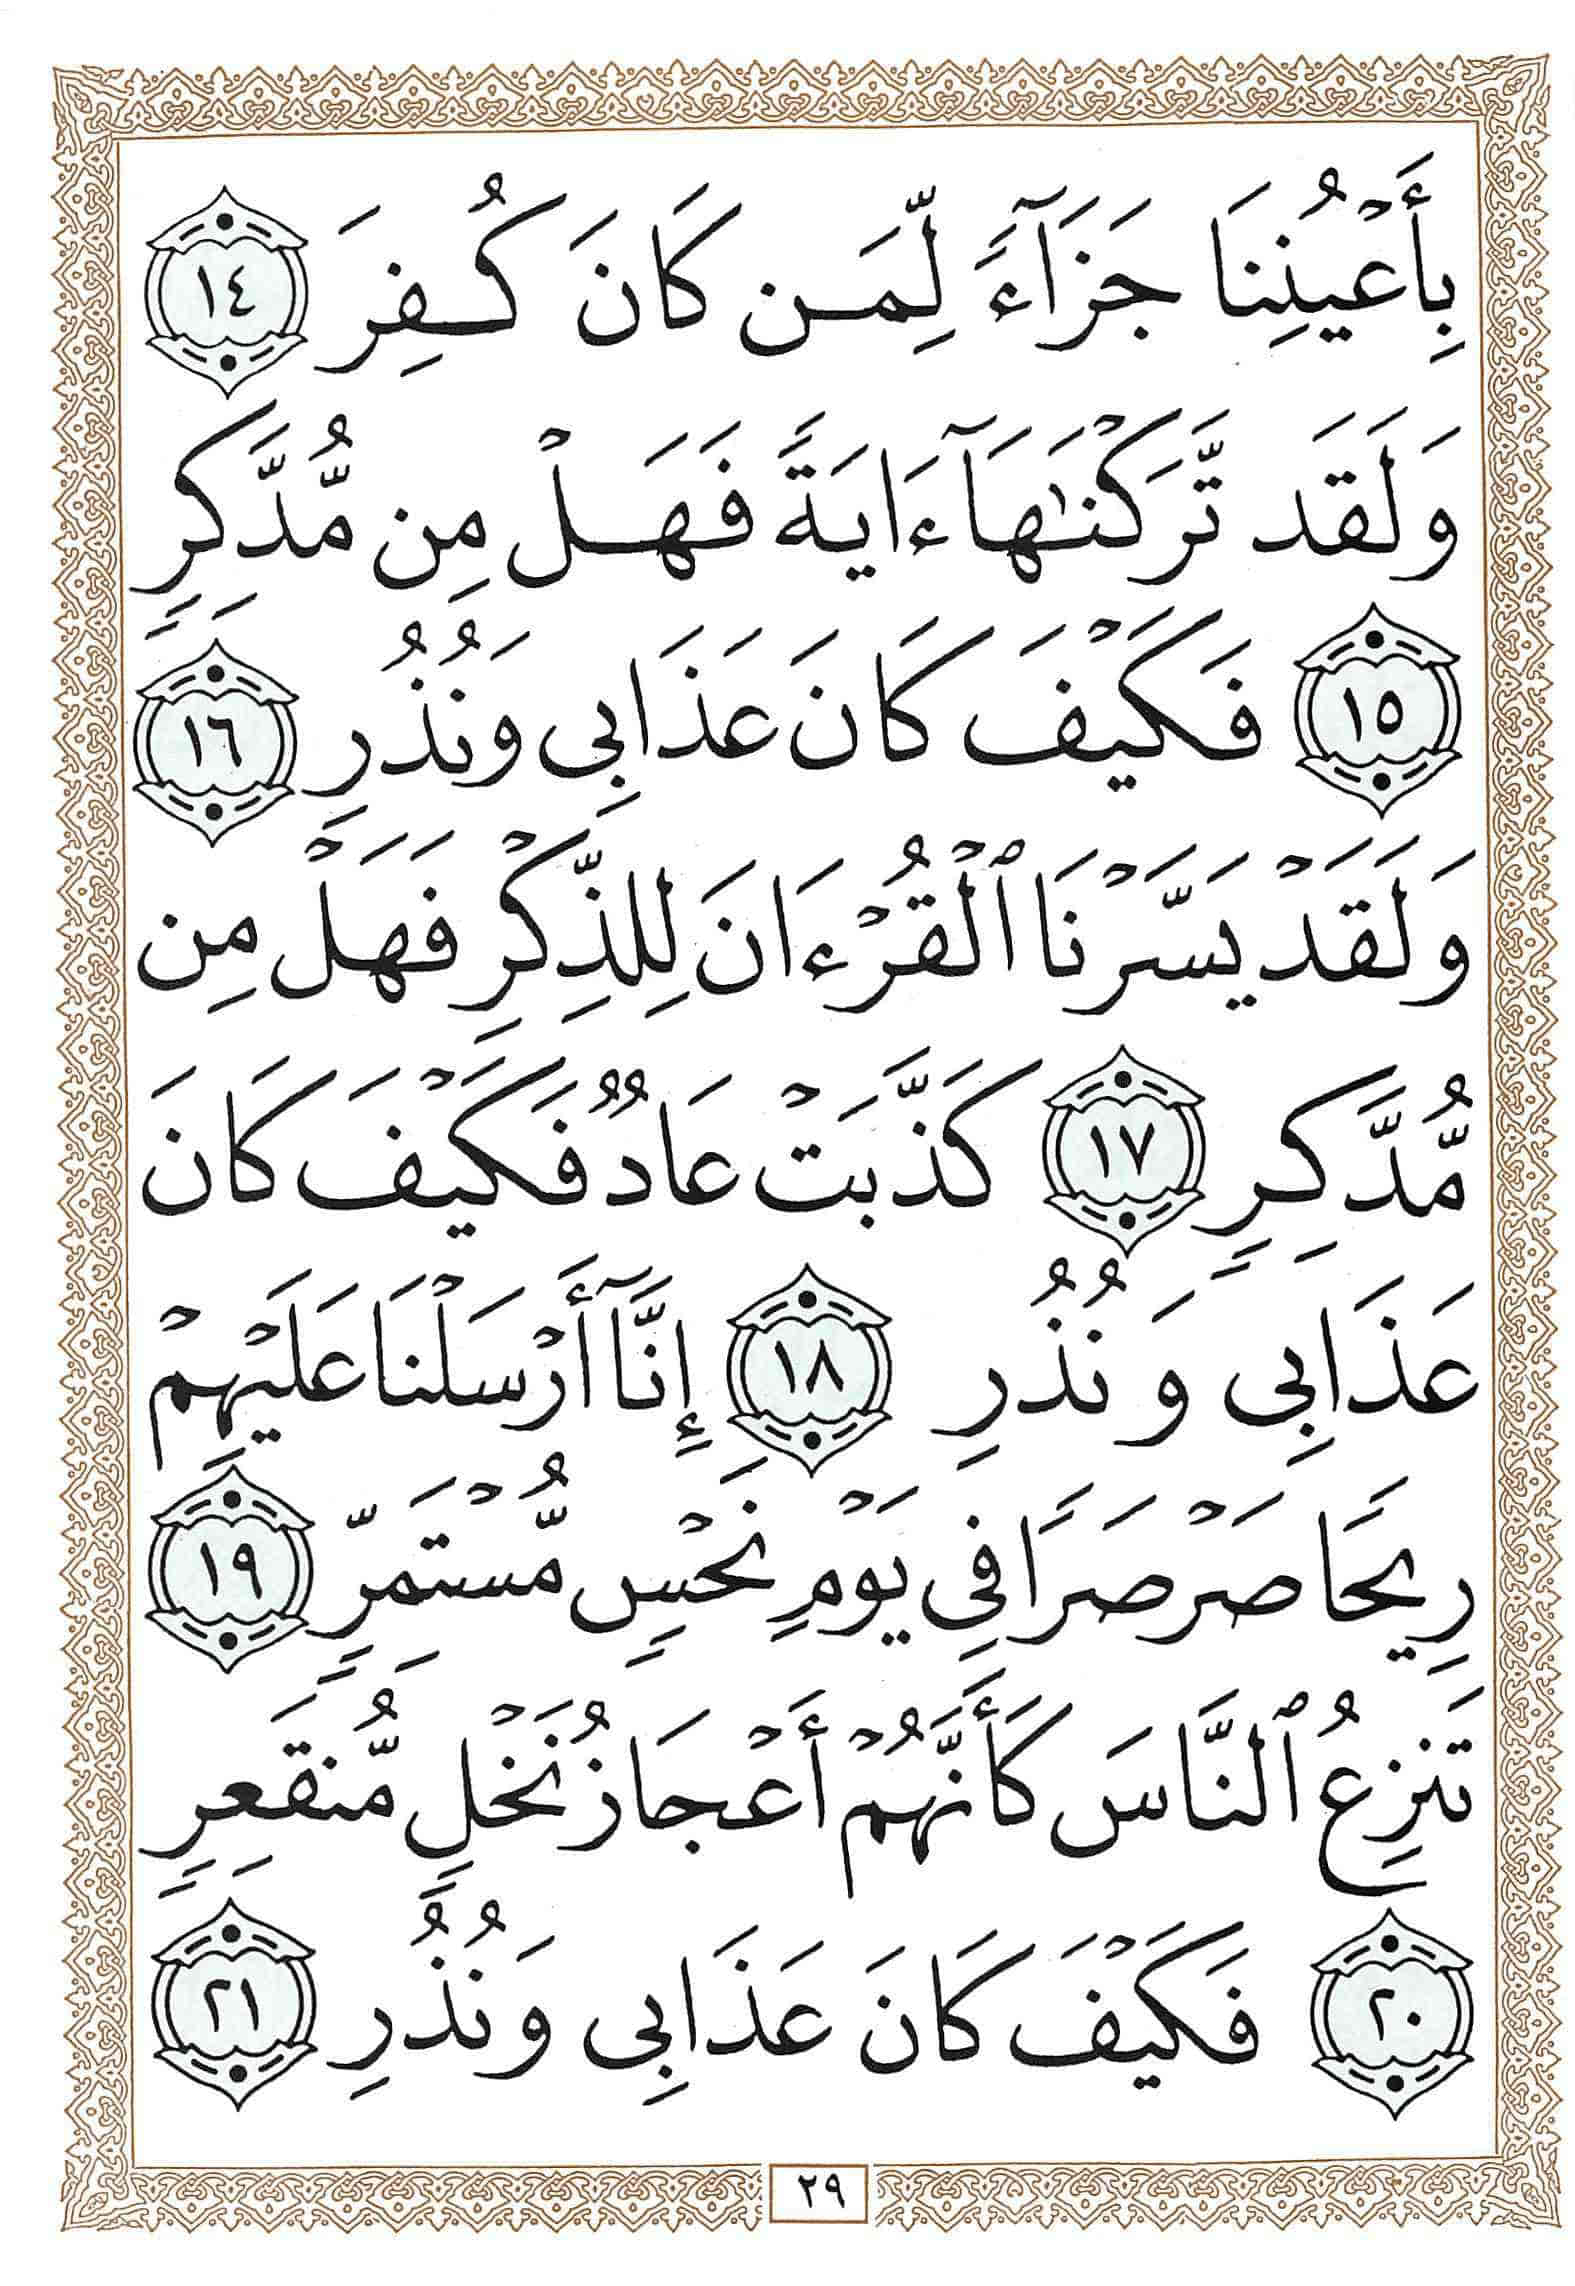 بِأَعْيُنِنَا جَزَآءً لِّمَن كَانَ كُفِرَ ١٤
وَلَقَد تَّرَكْنَٰهَآ ءَايَةً فَهَلْ مِن مُّدَّكِرٍ
١٥ فَكَيْفَ كَانَ عَذَابِى وَنُذُرِ ١٦
وَلَقَدْ يَسَّرْنَا ٱلْقُرْءَانَ لِلذِّكْرِ فَهَلْ مِن
مُّدَّكِرٍ ١٧ كَذَّبَتْ عَادٌ فَكَيْفَ كَانَ
عَذَابِى وَنُذُرِ ١٨ إِنَّآ أَرْسَلْنَا عَلَيْهِمْ
رِيحًا صَرْصَرًا فِى يَوْمِ نَحْسٍ مُّسْتَمِرٍّ ١٩
تَنزِعُ ٱلنَّاسَ كَأَنَّهُمْ أَعْجَازُ نَخْلٍ مُّنقَعِرٍ
٢٠ فَكَيْفَ كَانَ عَذَابِى وَنُذُرِ ٢١
٢٩